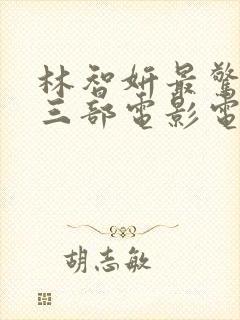 林智妍最驚
三部電影電
胡志敏